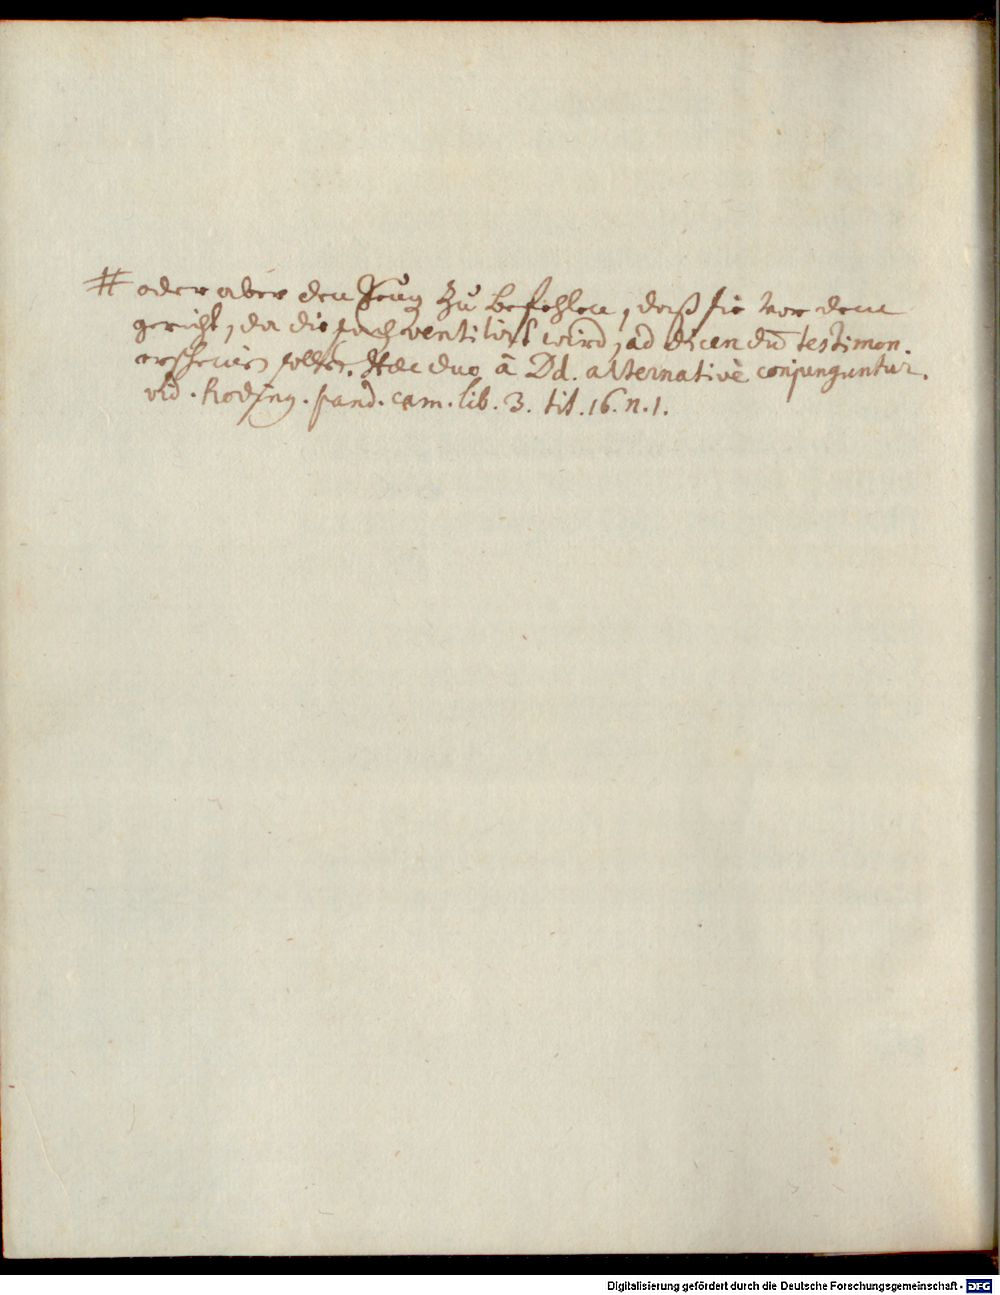 # oder aber den Zeug zu befehlen, daß sie vor dem
gericht, da die sach ventilirt wird, ad dicendū testimon.
erscheinen sollen. Hæc duo â Dd. alternativè conjunguntur.
vid. Roding. pand. cam. lib. 3. tit. 16. n. 1.
Digitalisierung gefördert durch die Deutsche Forschungsgemeinschaft - DFG